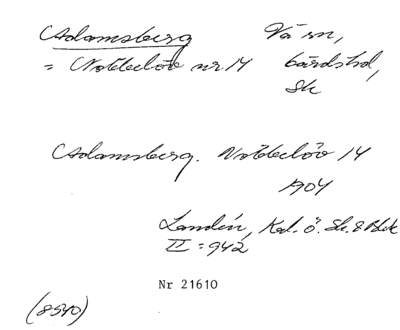 Adamsberg
= Nöbbelöv nr 14
Värn,
bärdshd,
Sk
Adamsberg. Nöbbelöv 14
1904
Landén, Kal. ö. Sk. & Blek
II = 942
Nr 21610
(8540)